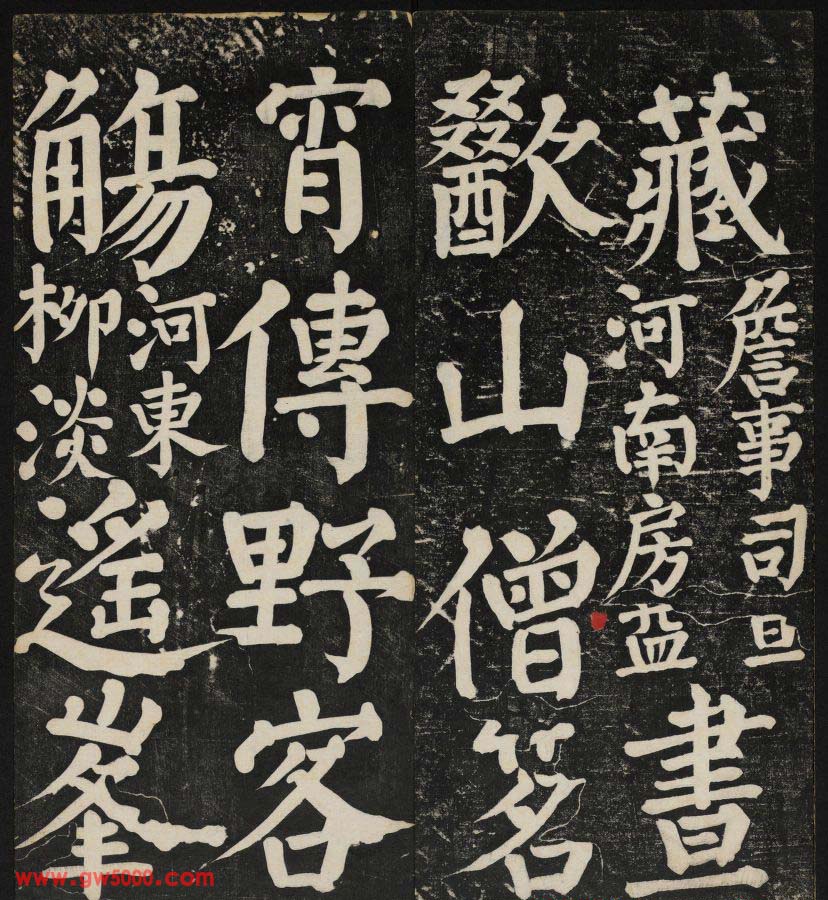 藏
詹事司旦
河南房益
晝
歠山僧茗
宵傳野客
觴
河東
柳淡
遙峯
www.gw5000.com